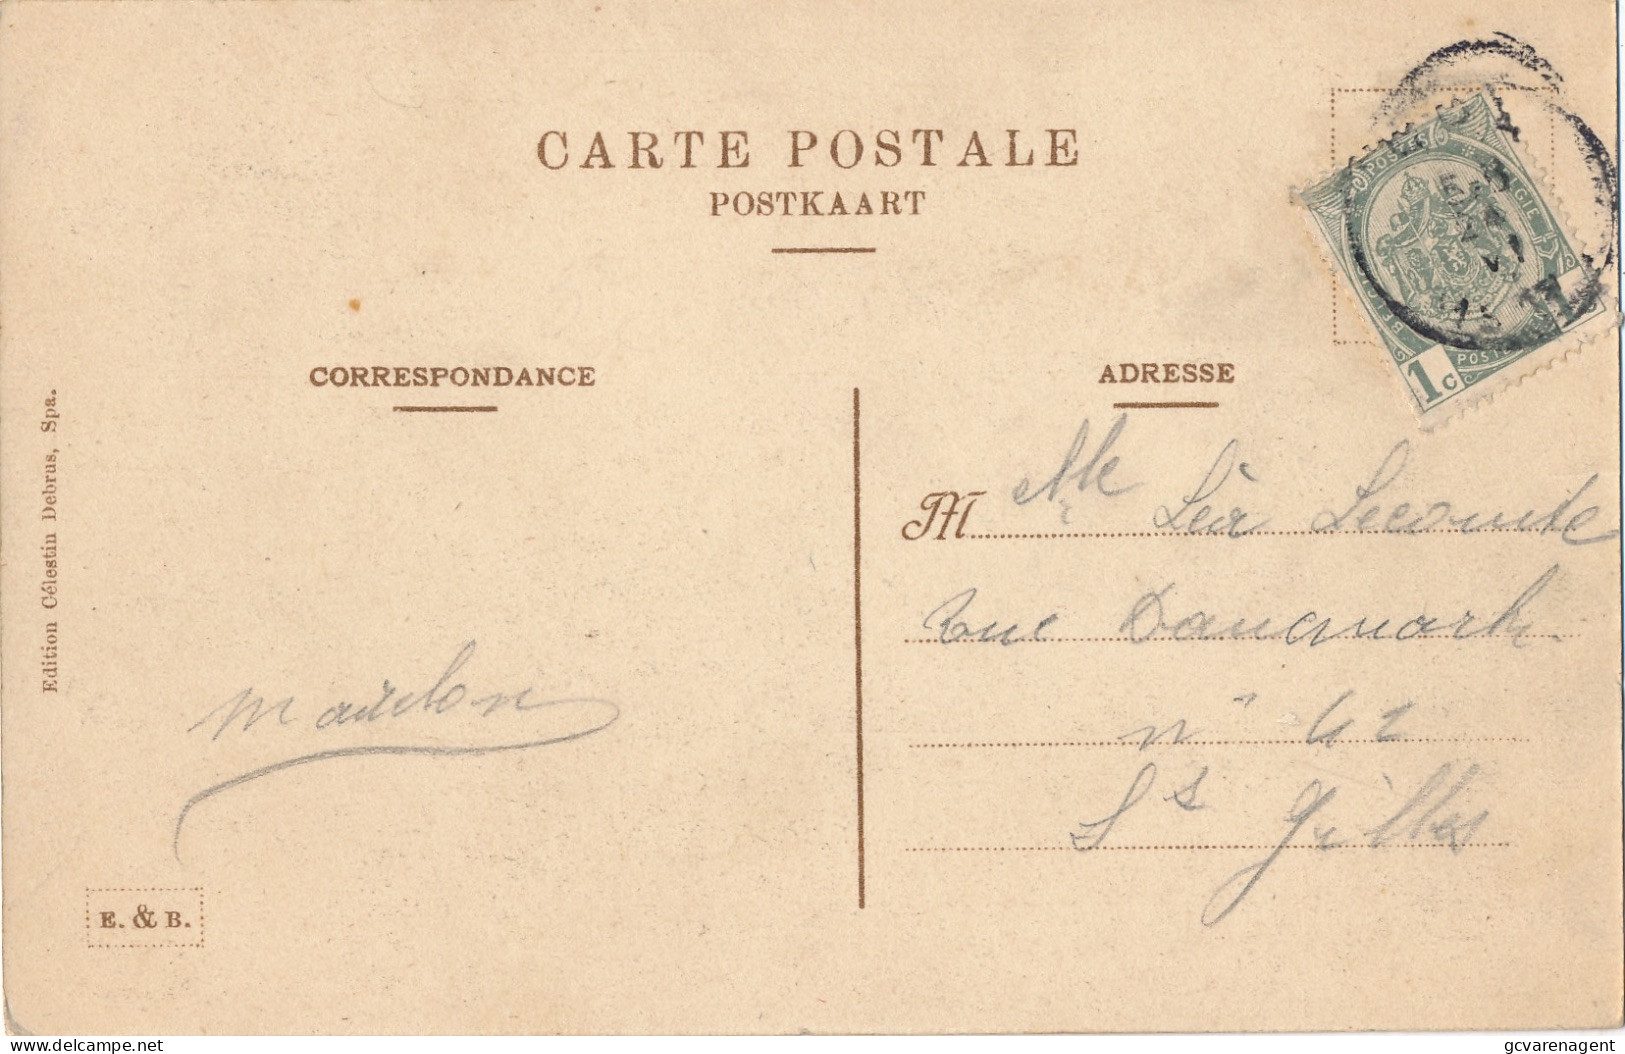 CARTE POSTALE
POSTKAART
CORRESPONDANCE
ADRESSE
POSTES
BELGIE
POSTERIJEN
1c
Edition Célestin Debrus, Spa.
M Mlle Léa Lecomte
rue Danemark
n° 42
St Gilles
E. & B.
delcampe.net
gcvarenagent